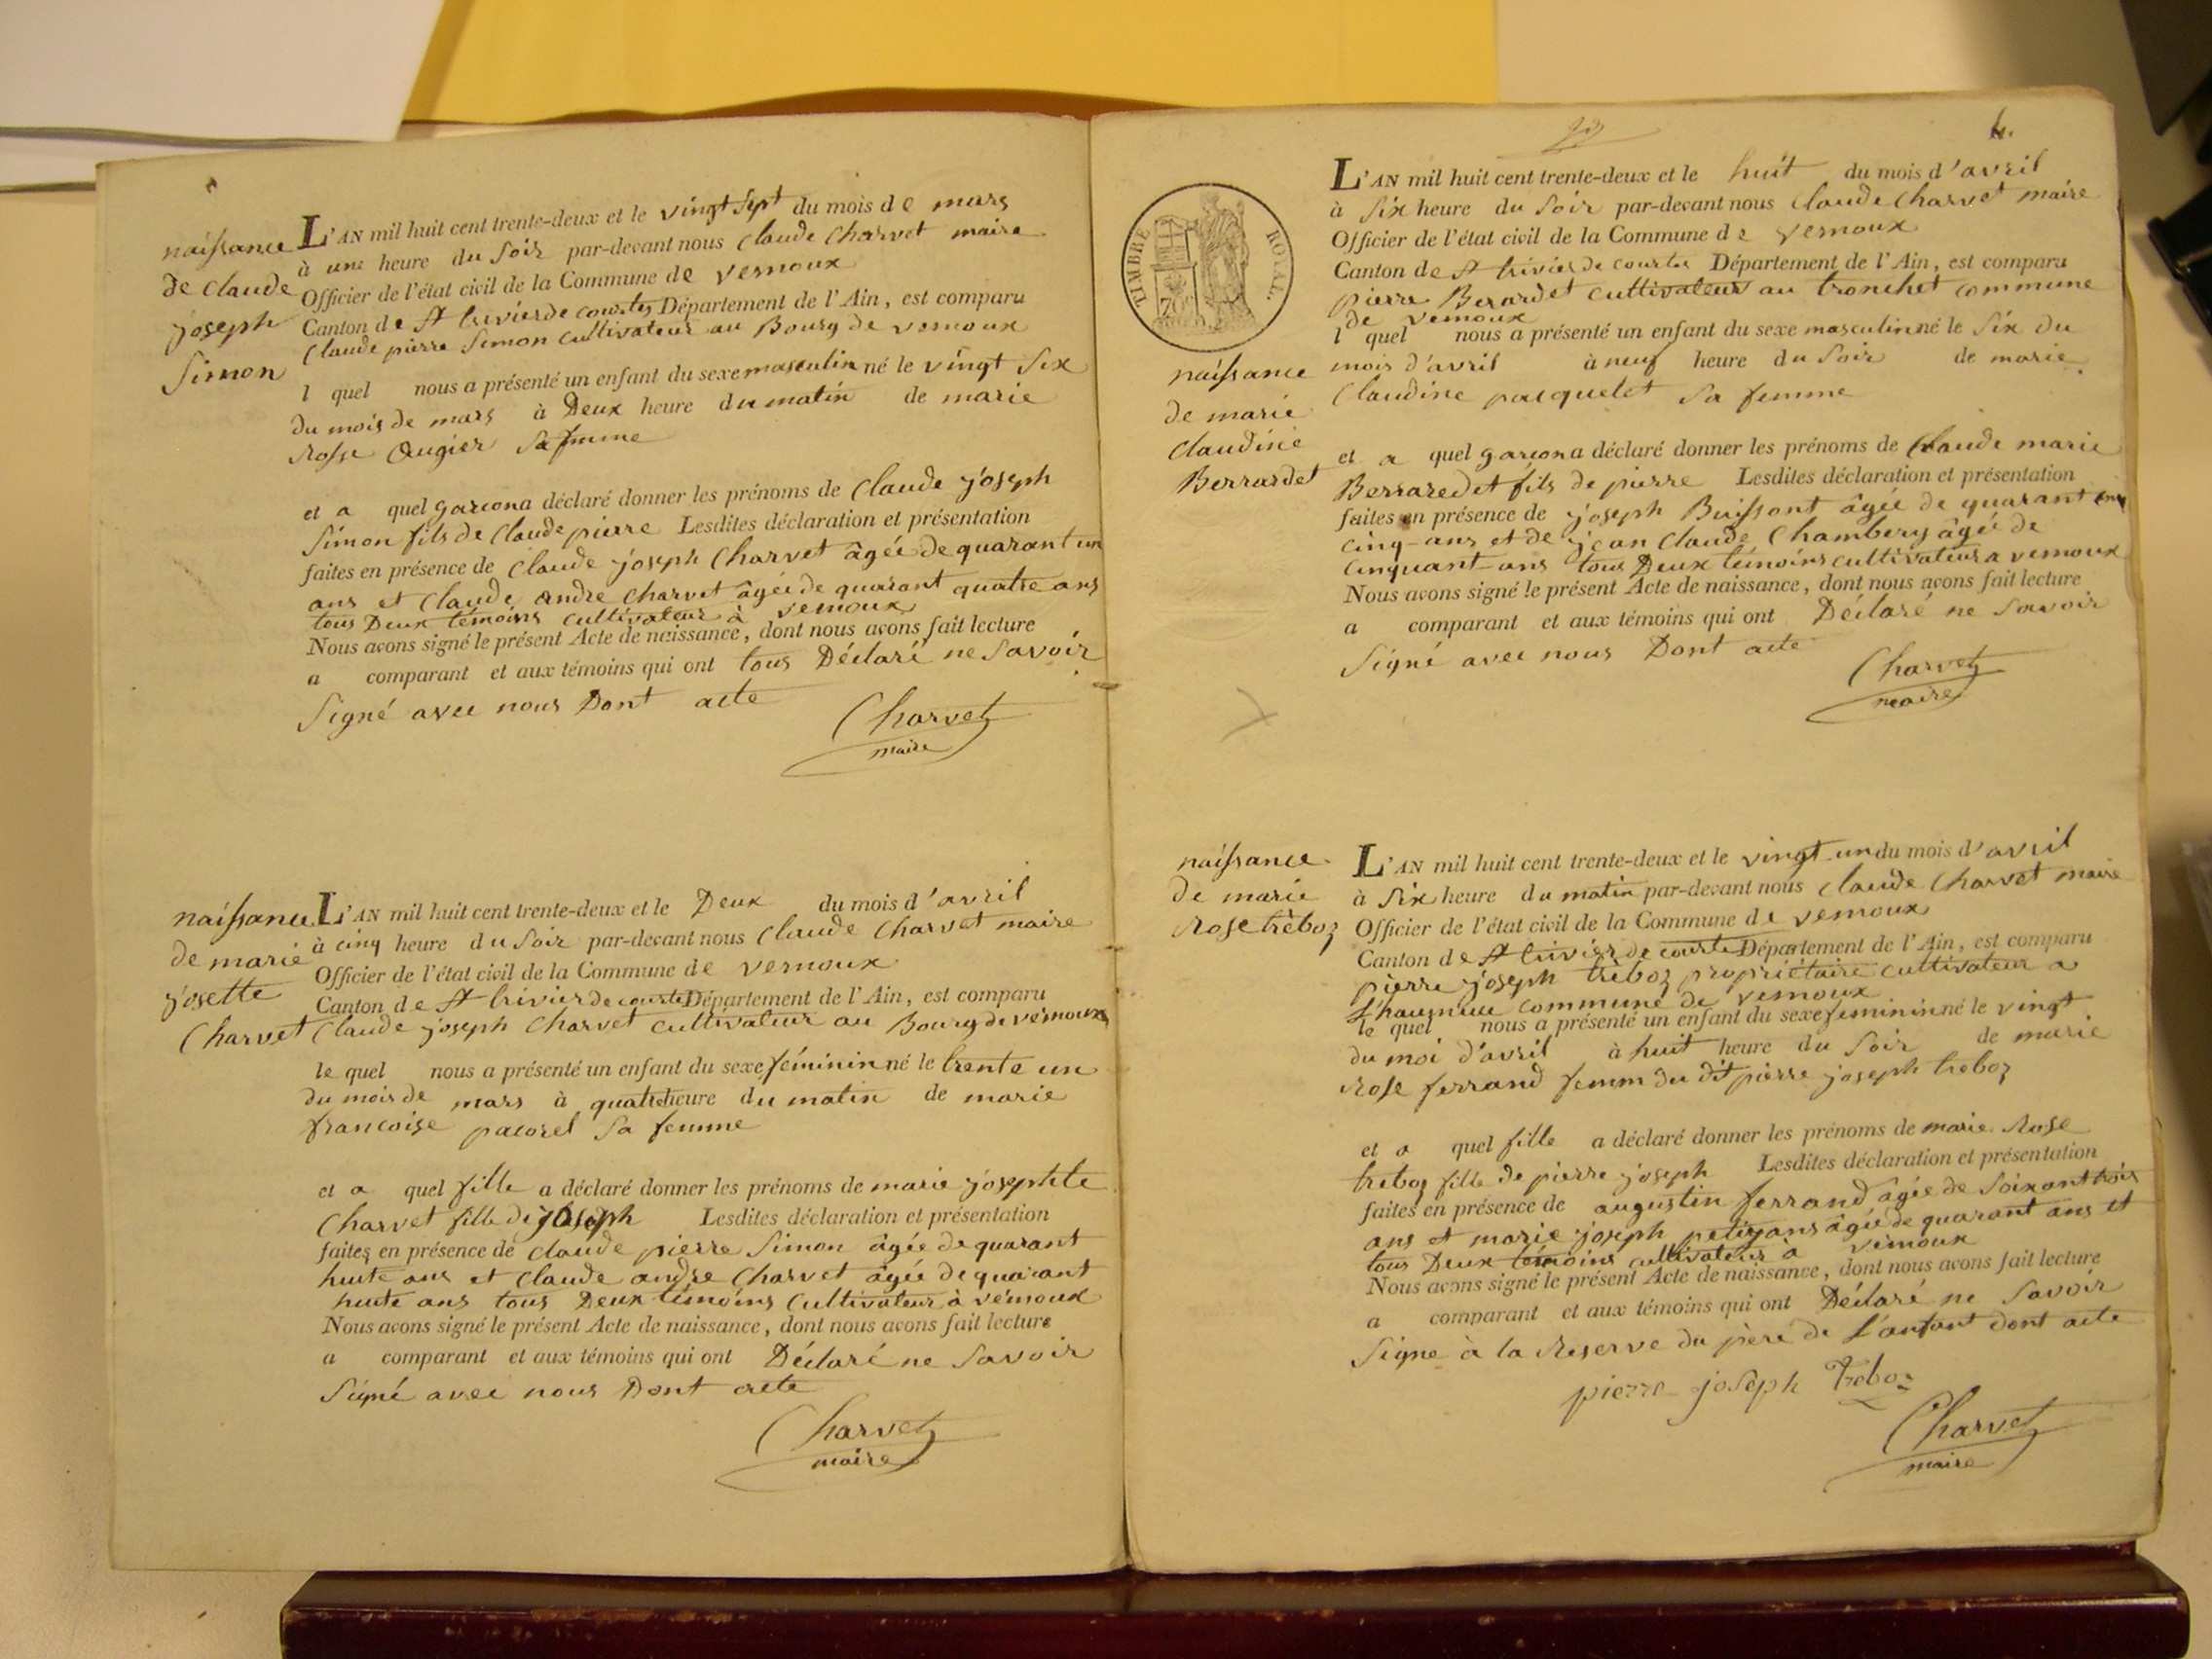 naissance
de Claude
joseph
Simon
L'AN mil huit cent trente-deux et le vingt sept du mois de mars
à une heure du soir par-devant nous Claude Charvet maire
Officier de l'état civil de la Commune de vernoux
Canton de St trivier de courtes Département de l'Ain, est comparu
Claude pierre Simon cultivateur au Bourg de vernoux
l quel nous a présenté un enfant du sexe masculin né le vingt six
du mois de mars à Deux heure du matin de marie
Rosse Augier sa femme
et a quel garcon a déclaré donner les prénoms de Claude joseph
Simon fils de Claude pierre Lesdites déclaration et présentation
faites en présence de Claude joseph Charvet âgée de quarant un
ans et Claude andre Charvet âgée de quarant quatre ans
tous Deux témoins cultivateur à vernoux
Nous avons signé le présent Acte de naissance, dont nous avons fait lecture
a comparant et aux témoins qui ont tous Déclaré ne savoir
Signé avec nous Dont acte
Charvet
maire
naissance
de marie
josette
Charvet
L'AN mil huit cent trente-deux et le Deux du mois d'avril
à cinq heure du soir par-devant nous Claude Charvet maire
Officier de l'état civil de la Commune de vernoux
Canton de St trivier de courtes Département de l'Ain, est comparu
Claude joseph Charvet cultivateur au Bourg de vernoux
le quel nous a présenté un enfant du sexe féminin né le trente un
du mois de mars à quatre heure du matin de marie
francoise pacoret sa femme
et a quel fille a déclaré donner les prénoms de marie josephte
Charvet fille de joseph Lesdites déclaration et présentation
faites en présence de Claude pierre Simon âgée de quarant
huite ans et Claude andre Charvet âgée de quarant
huite ans tous Deux témoins cultivateur à vernoux
Nous avons signé le présent Acte de naissance, dont nous avons fait lecture
a comparant et aux témoins qui ont Déclaré ne savoir
Signé avec nous Dont acte
Charvet
maire
4.
TIMBRE ROYAL.
naissance
de marie
Claudine
Berrardet
L'AN mil huit cent trente-deux et le huit du mois d'avril
à six heure du soir par-devant nous Claude Charvet maire
Officier de l'état civil de la Commune de vernoux
Canton de St trivier de courtes Département de l'Ain, est comparu
pierre Berardet cultivateur au tronchet commune
de vernoux
l quel nous a présenté un enfant du sexe masculin né le six du
mois d'avril à neuf heure du soir de marie
Claudine pacquelet sa femme
et a quel garcon a déclaré donner les prénoms de Claude marie
Berraredet fils de pierre Lesdites déclaration et présentation
faites en présence de joseph Buissont âgée de quarant
cinq ans et de jean Claude Chambery âgé de
cinquant ans tous Deux témoins cultivateur a vernoux
Nous avons signé le présent Acte de naissance, dont nous avons fait lecture
a comparant et aux témoins qui ont Déclaré ne savoir
Signé avec nous Dont acte
Charvet
maire
naissance
de marie
Rose trèboz
L'AN mil huit cent trente-deux et le vingt un du mois d'avril
à six heure du matin par-devant nous Claude Charvet maire
Officier de l'état civil de la Commune de vernoux
Canton de St trivier de courte Département de l'Ain, est comparu
pierre joseph trèboz propriétaire cultivateur a
commune de vernoux
le quel nous a présenté un enfant du sexe feminin né le vingt
du moi d'avril à huit heure du soir de marie
Rose ferrand femm du dit pierre joseph treboz
et a quel fille a déclaré donner les prénoms de marie Rose
treboz fille de pierre joseph Lesdites déclaration et présentation
faites en présence de augustin ferrand âgée de soixant trois
ans et marie joseph petitjans âgée de quarant ans et
tous Deux témoins cultivateur a vernoux
Nous avons signé le présent Acte de naissance, dont nous avons fait lecture
a comparant et aux témoins qui ont Déclaré ne savoir
Signe à la Reserve du père de l'anfant dont acte
pierre joseph Treboz
Charvet
maire